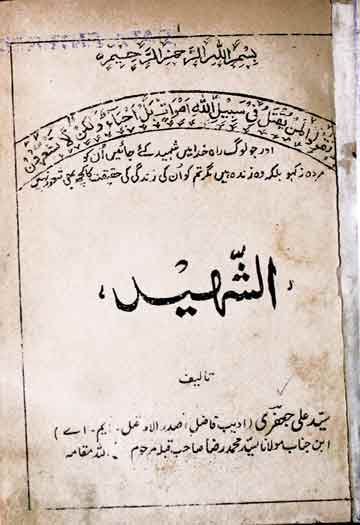 ۱
بسم اللہ الرحمن الرحیم
ولا تقولوا لمن یقتل فی سبیل اللہ امواتٌ بل احیاءٌ ولکن لا تشعرون
اور جو لوگ راہ خدا میں شہید کئے جائیں اُن کو
مردہ نہ کہو بلکہ وہ زندہ ہیں مگر تم کو اُن کی زندگی کی حقیقت کا کچھ بھی شعور نہیں
الشّھید
تالیف
سیّد علی جعفری (ادیب فاضل، صدر الافاضل۔ ایم۔ اے)
ابن جناب مولانا سیّد محمد رضا صاحب قبلہ مرحوم مقامہ